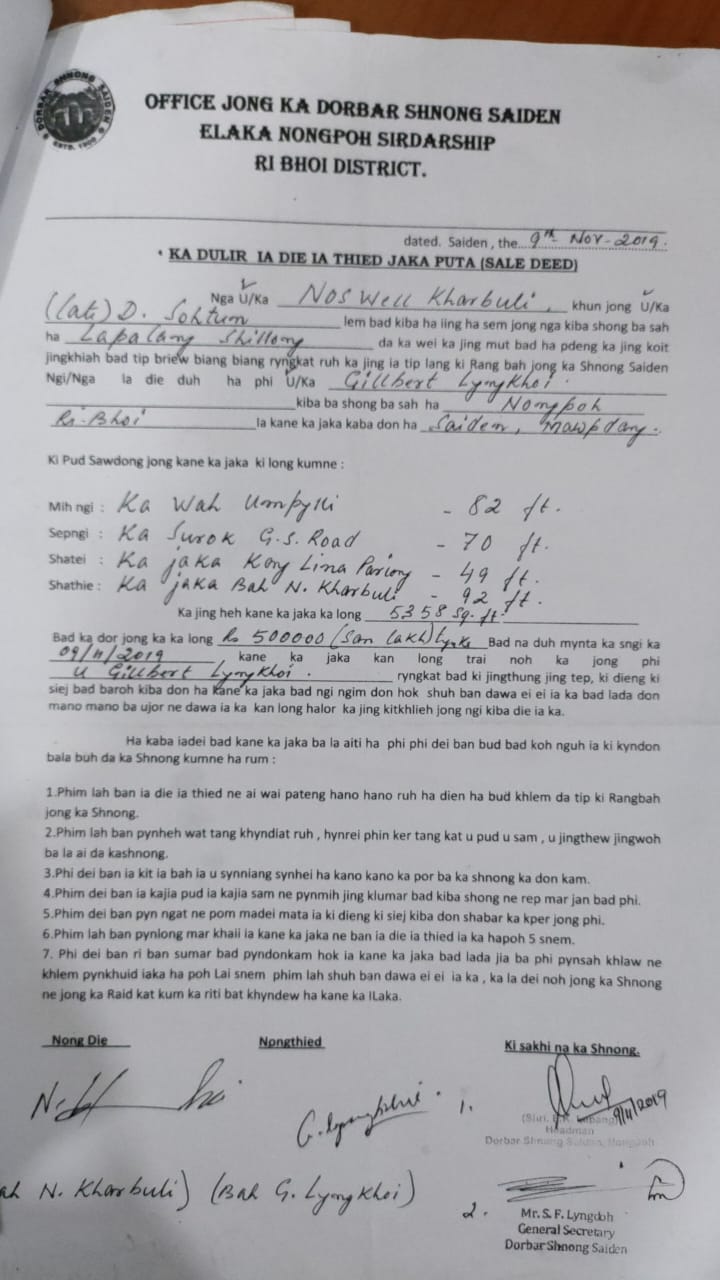 DORBAR SHNONG SAIDEN
ESTD. 1900
OFFICE JONG KA DORBAR SHNONG SAIDEN
ELAKA NONGPOH SIRDARSHIP
RI BHOI DISTRICT.
dated. Saiden , the 9th Nov-2019.
KA DULIR IA DIE IA THIED JAKA PUTA (SALE DEED)
Nga U/Ka Noswell Kharbuli, khun jong U/Ka
(Late) D. Sohtun lem bad kiba ha iing ha sem jong nga kiba shong ba sah
ha Lapalang Shillong da ka wei ka jing mut bad ha pdeng ka jing koit
jingkhiah bad tip briew biang biang ryngkat ruh ka jing ia tip lang ki Rang bah jong ka Shnong Saiden
Ngi/Nga la die duh ha phi U/Ka Gillbert Lyngkhoi.
kiba ba shong ba sah ha Nongpoh
Ri-Bhoi la kane ka jaka kaba don ha Saiden, Mawpdang.
Ki Pud Sawdong jong kane ka jaka ki long kumne :
Mih ngi : Ka Wah Umpyrli - 82 ft.
Sepngi : Ka Surok G.S. Road - 70 ft.
Shatei : Ka jaka Kong Lina Pariong - 49 ft.
Shathie : Ka jaka Bah N. Kharbuli - 92 ft.
Ka jing heh kane ka jaka ka long 5358 Sq. ft.
Bad ka dor jong ka ka long Rs 500000 (San lakh) tyngka Bad na duh mynta ka sngi ka
09/11/2019 kane ka jaka kan long trai noh ka jong phi
U Gillbert Lyngkhoi. ryngkat bad ki jingthung jing tep, ki dieng ki
siej bad baroh kiba don ha kane ka jaka bad ngi ngim don hok shuh ban dawa ei ei ia ka bad lada don
mano mano ba ujor ne dawa ia ka kan long halor ka jing kitkhlieh jong ngi kiba die ia ka.
Ha kaba iadei bad kane ka jaka ba la aiti ha phi phi dei ban bud bad koh nguh ia ki kyndon
bala buh da ka Shnong kumne ha rum :
1.Phim lah ban ia die ia thied ne ai wai pateng hano hano ruh ha dien ha bud khlem da tip ki Rangbah
jong ka Shnong.
2.Phim lah ban pynheh wat tang khyndiat ruh , hynrei phin ker tang kat u pud u sam , u jingthew jingwoh
ba la ai da kashnong.
3.Phi dei ban ia kit ia bah ia u synniang synhei ha kano kano ka por ba ka shnong ka don kam.
4.Phim dei ban ia kajia pud ia kajia sam ne pynmih jing klumar bad kiba shong ne rep mar jan bad phi.
5.Phim dei ban pyn ngat ne pom madei mata ia ki dieng ki siej kiba don shabar ka kper jong phi.
6.Phim lah ban pynlong mar khaii ia kane ka jaka ne ban ia die ia thied ia ka hapoh 5 snem.
7. Phi dei ban ri ban sumar bad pyndonkam hok ia kane ka jaka bad lada jia ba phi pynsah khlaw ne
khlem pynkhuid iaka ha poh Lai snem phim lah shuh ban dawa ei ei ia ka , ka la dei noh jong ka Shnong
ne jong ka Raid kat kum ka riti bat khyndew ha kane ka ILaka.
Nong Die Nongthied Ki sakhi na ka Shnong.
G. Lyngkhoi. 1. 9/11/2019
Headman
Dorbar Shnong Saiden, Nongpoh
ah N. Kharbuli) (Bah G. Lyngkhoi)
2.
Mr. S. F. Lyngdoh
General Secretary
Dorbar Shnong Saiden